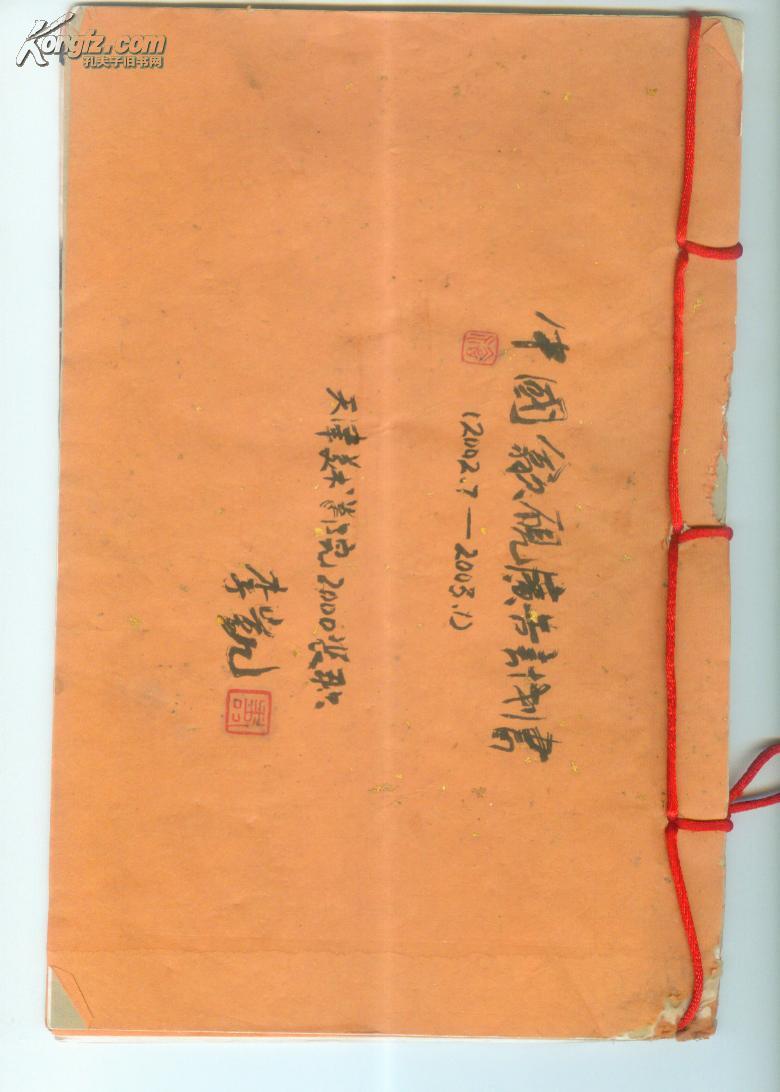 Kongfz.com
孔夫子旧书网
中國歙硯廣告計划書
(2002.7—2003.1)
天津美术学院2000装取
李凱